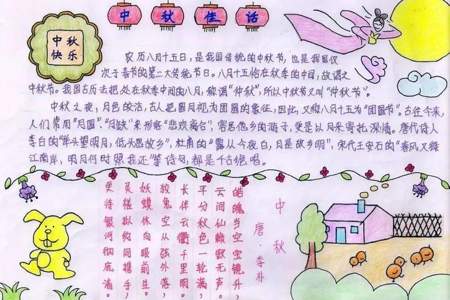 中秋佳话
中秋
快乐
农历八月十五日,是我国传统的中秋节,也是我国仅
次于春节的第二大传统节日。八月十五恰在秋季的中间,故谓之
中秋节。我国古历法把处在秋季中间的八月,称谓“仲秋”,所以中秋节又叫“仲秋节”。
中秋之夜,月色皎洁,古人把圆月视为团圆的象征,因此,又称八月十五为“团圆节”。古往今来,
人们常用“月圆”、“月缺”来形容“悲欢离合”,客居他乡的游子,更是以月来寄托深情。唐代诗人
李白的“举头望明月,低头思故乡”,杜甫的“露从今夜白,月是故乡明”,宋代王安石的“春风又绿
江南岸,明月何时照我还”等诗句,都是千古绝唱。
中秋
唐·李朴
皓魄当空宝镜升,
云间仙籁寂无声。
平分秋色一轮满,
长伴云衢千里明。
狡兔空从弦外落,
妖蟆休向眼前生。
灵槎拟约同携手,
更待银河彻底清。